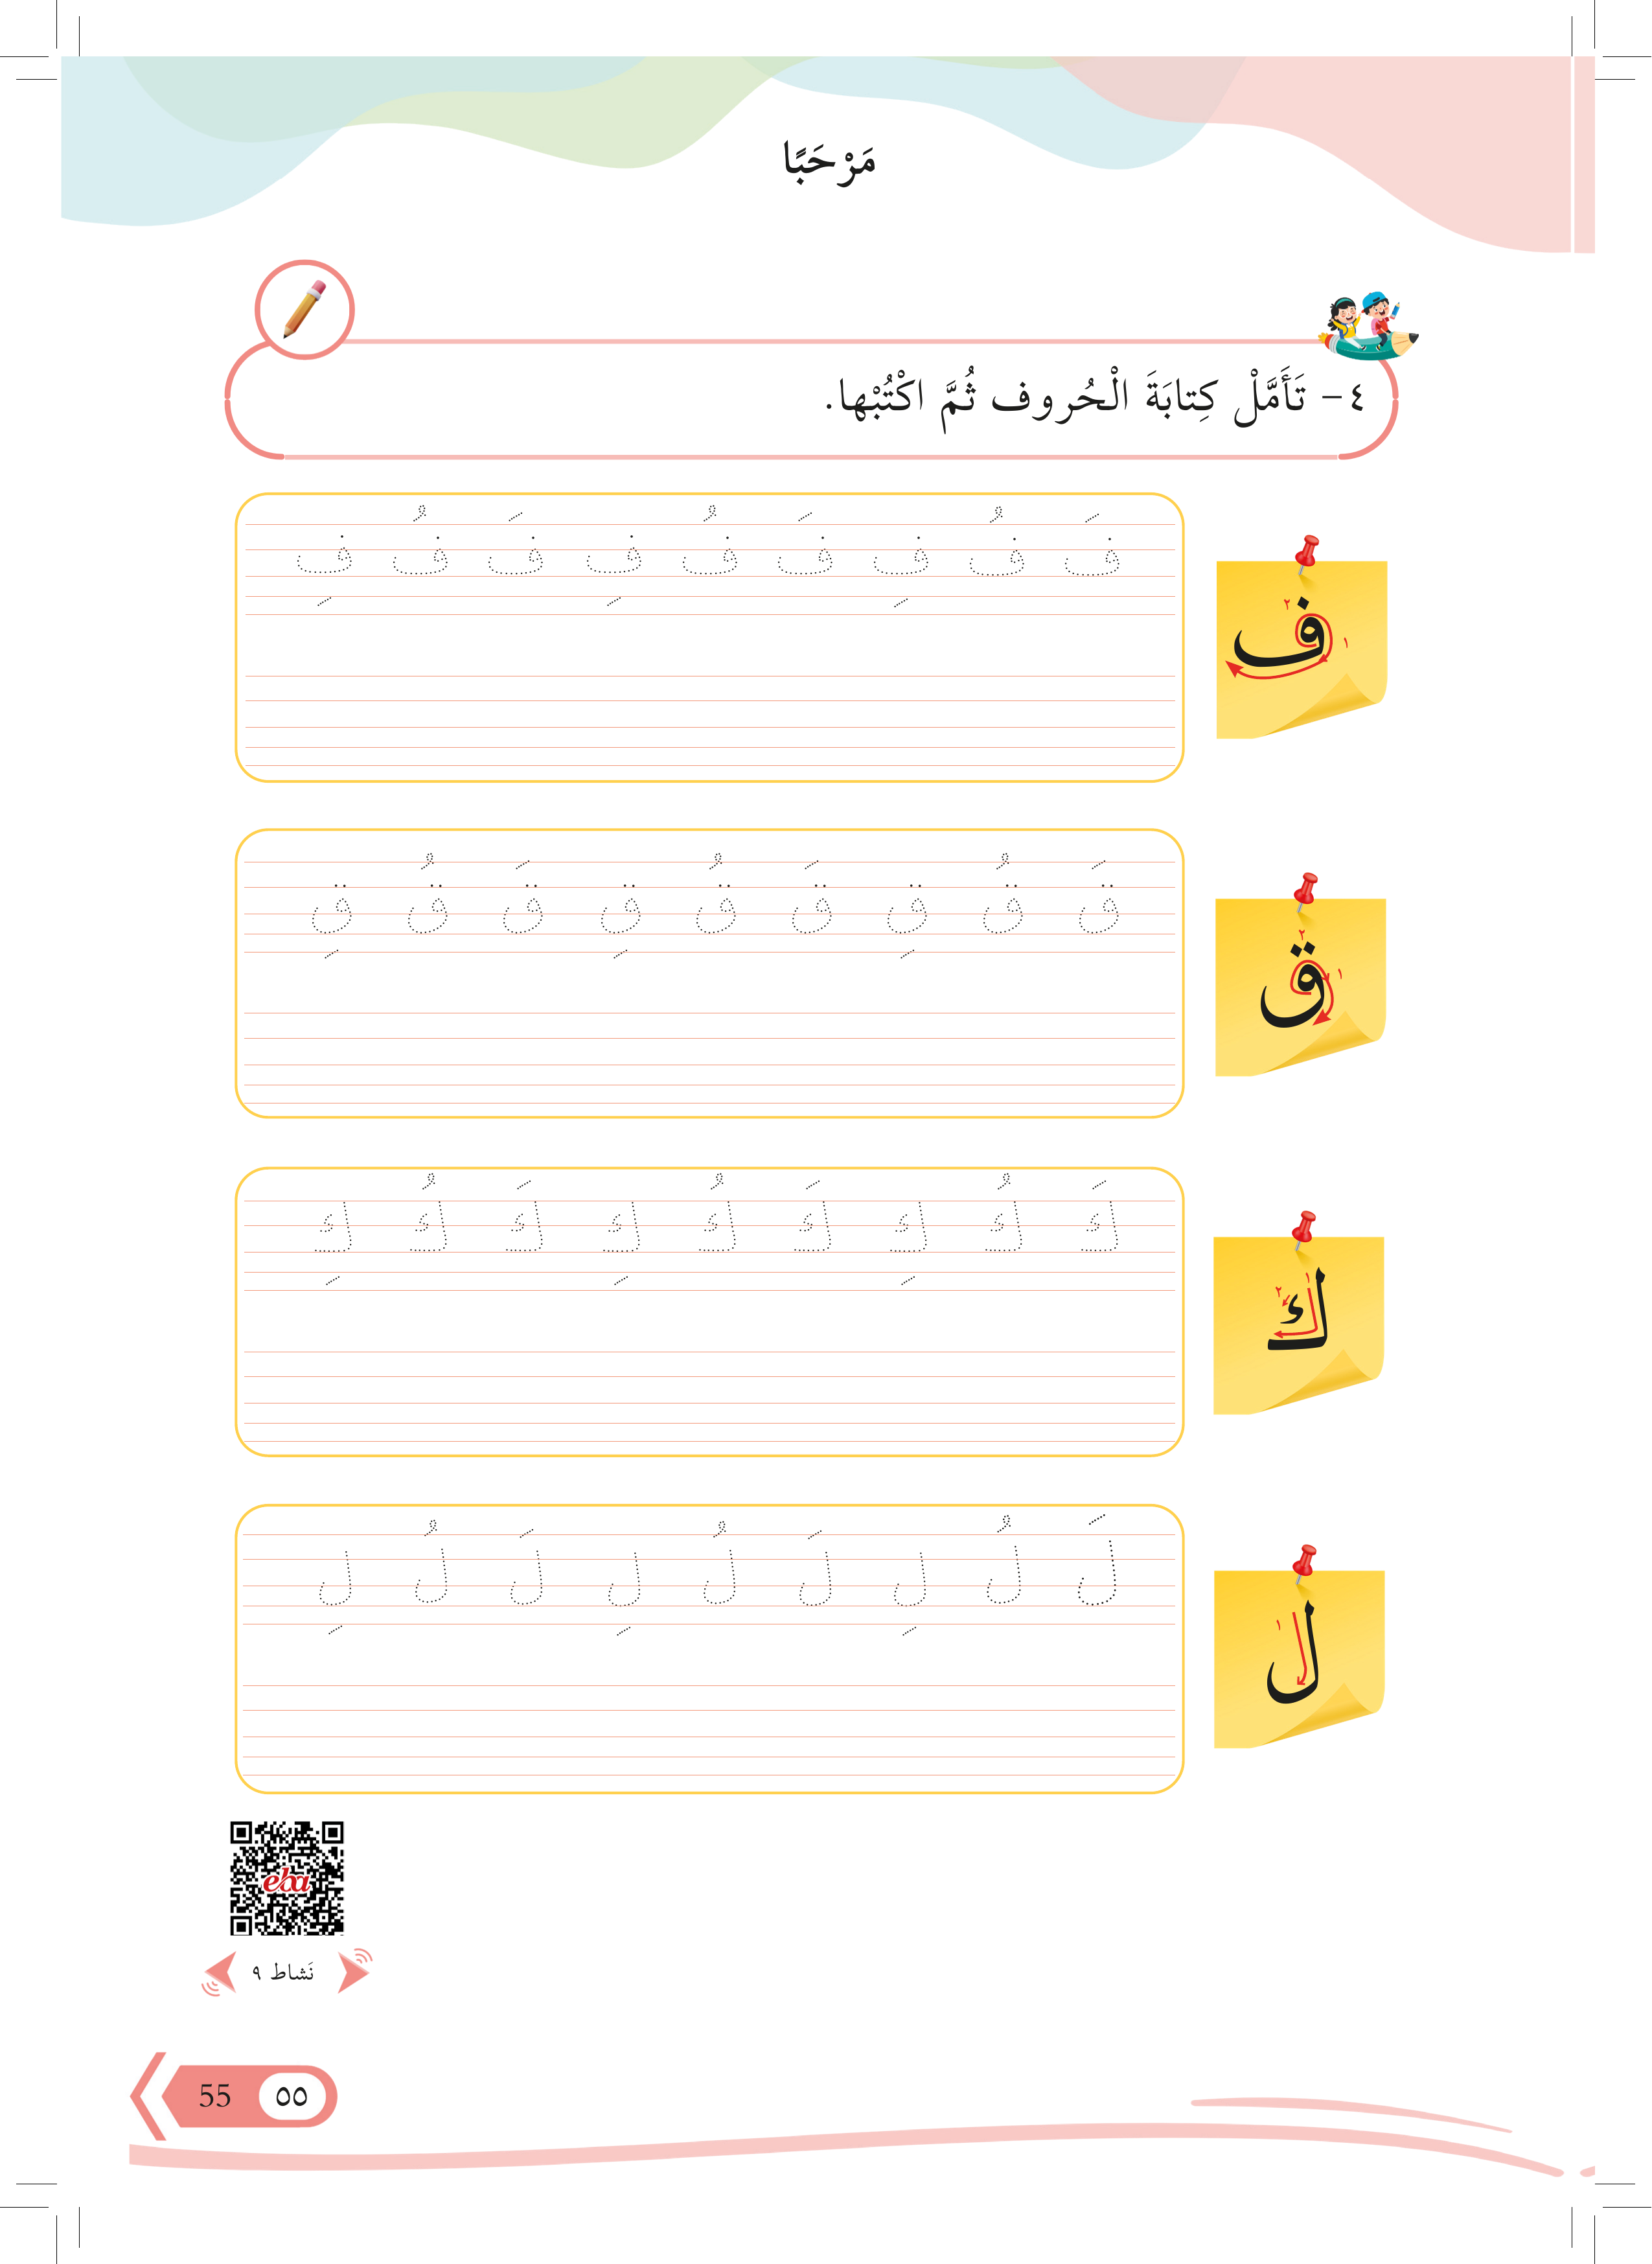 مَرْحَبًا
٤- تَأَمَّلْ كِتابَةَ الْحُروف ثُمَّ اكْتُبْها.
فَ فُ فِ فَ فُ فِ فَ فُ فِ
ف
١ ٢
قَ قُ قِ قَ قُ قِ قَ قُ قِ
ق
١ ٢
كَ كُ كِ كَ كُ كِ كَ كُ كِ
ك
١ ٢
لَ لُ لِ لَ لُ لِ لَ لُ لِ
ل
١
eba
نَشاط ٩
55 ٥٥